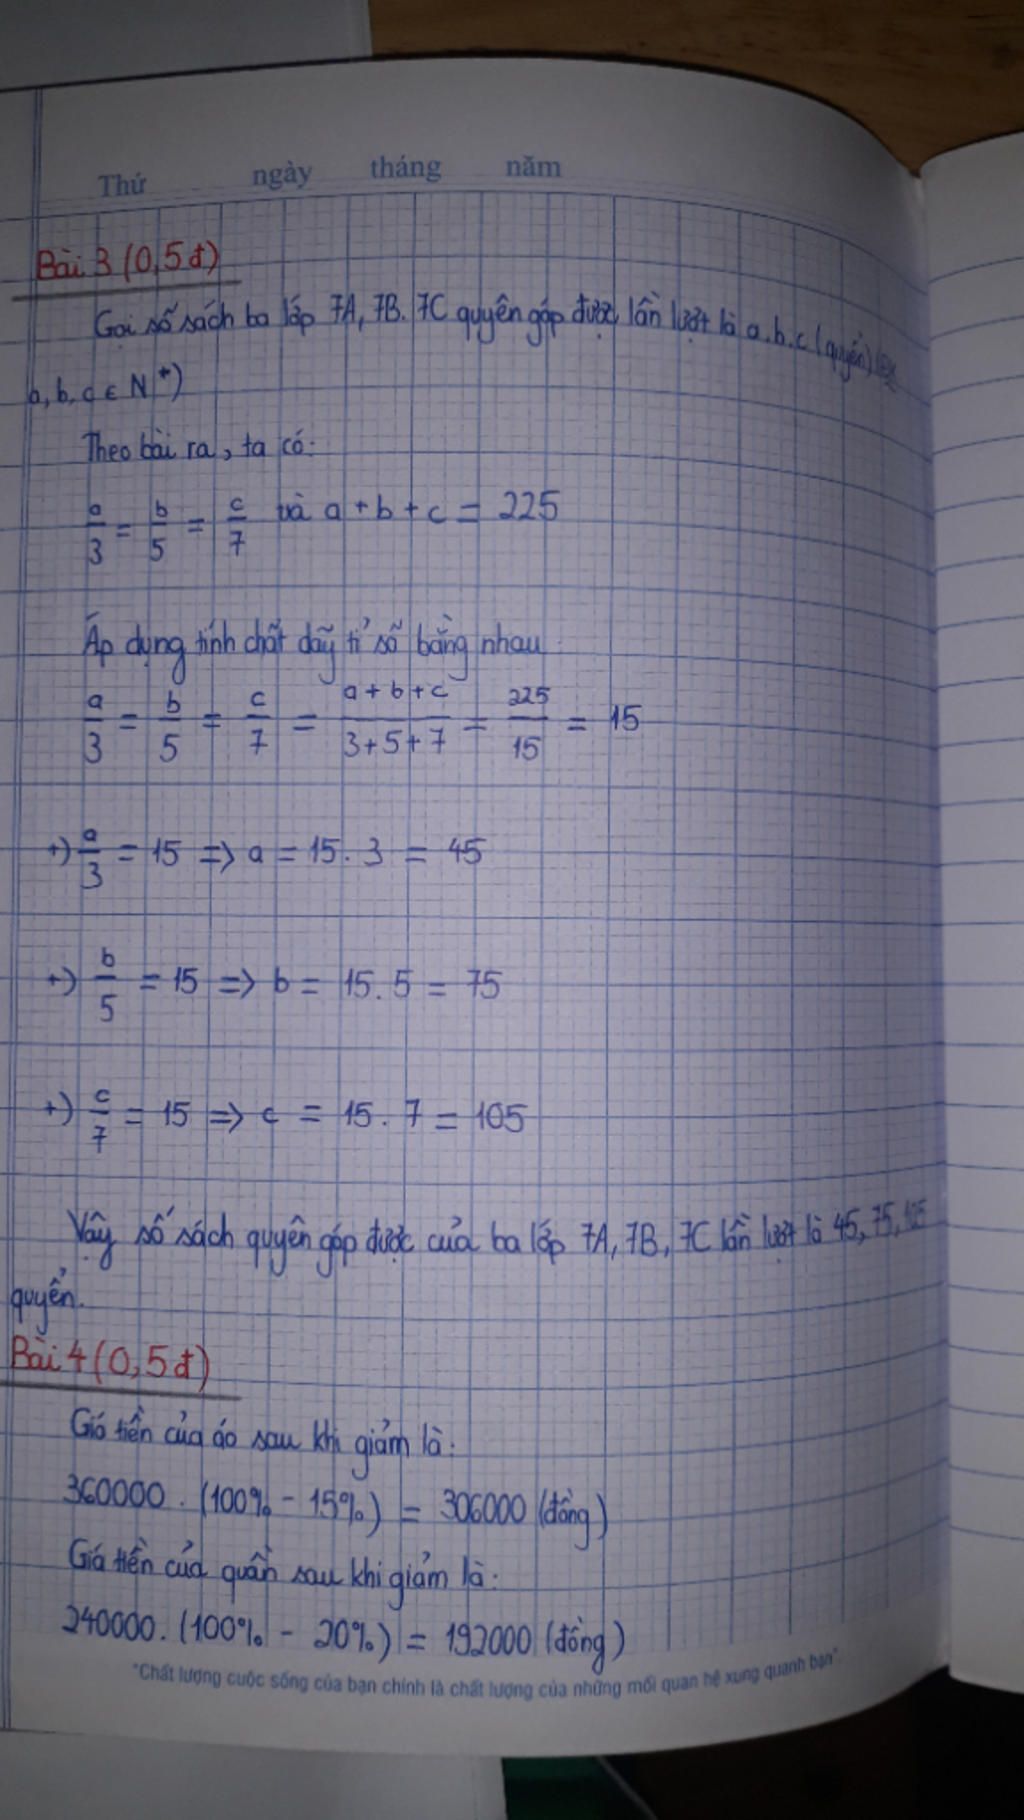 Thứ ngày tháng năm
Bài 3 (0,5đ)
Gọi số sách ba lớp 7A, 7B, 7C quyên góp được lần lượt là a, b, c (quyển)
a, b, c ∈ N*)
Theo bài ra, ta có:
a/3 = b/5 = c/7 và a + b + c = 225
Áp dụng tính chất dãy tỉ số bằng nhau:
a/3 = b/5 = c/7 = (a + b + c)/(3 + 5 + 7) = 225/15 = 15
+) a/3 = 15 => a = 15 . 3 = 45
+) b/5 = 15 => b = 15 . 5 = 75
+) c/7 = 15 => c = 15 . 7 = 105
Vậy số sách quyên góp được của ba lớp 7A, 7B, 7C lần lượt là 45, 75, 105
quyển.
Bài 4 (0,5đ)
Giá tiền của áo sau khi giảm là:
360000 . (100% - 15%) = 306000 (đồng)
Giá tiền của quần sau khi giảm là:
240000. (100% - 20%) = 192000 (đồng)
"Chất lượng cuộc sống của bạn chính là chất lượng của những mối quan hệ xung quanh bạn".